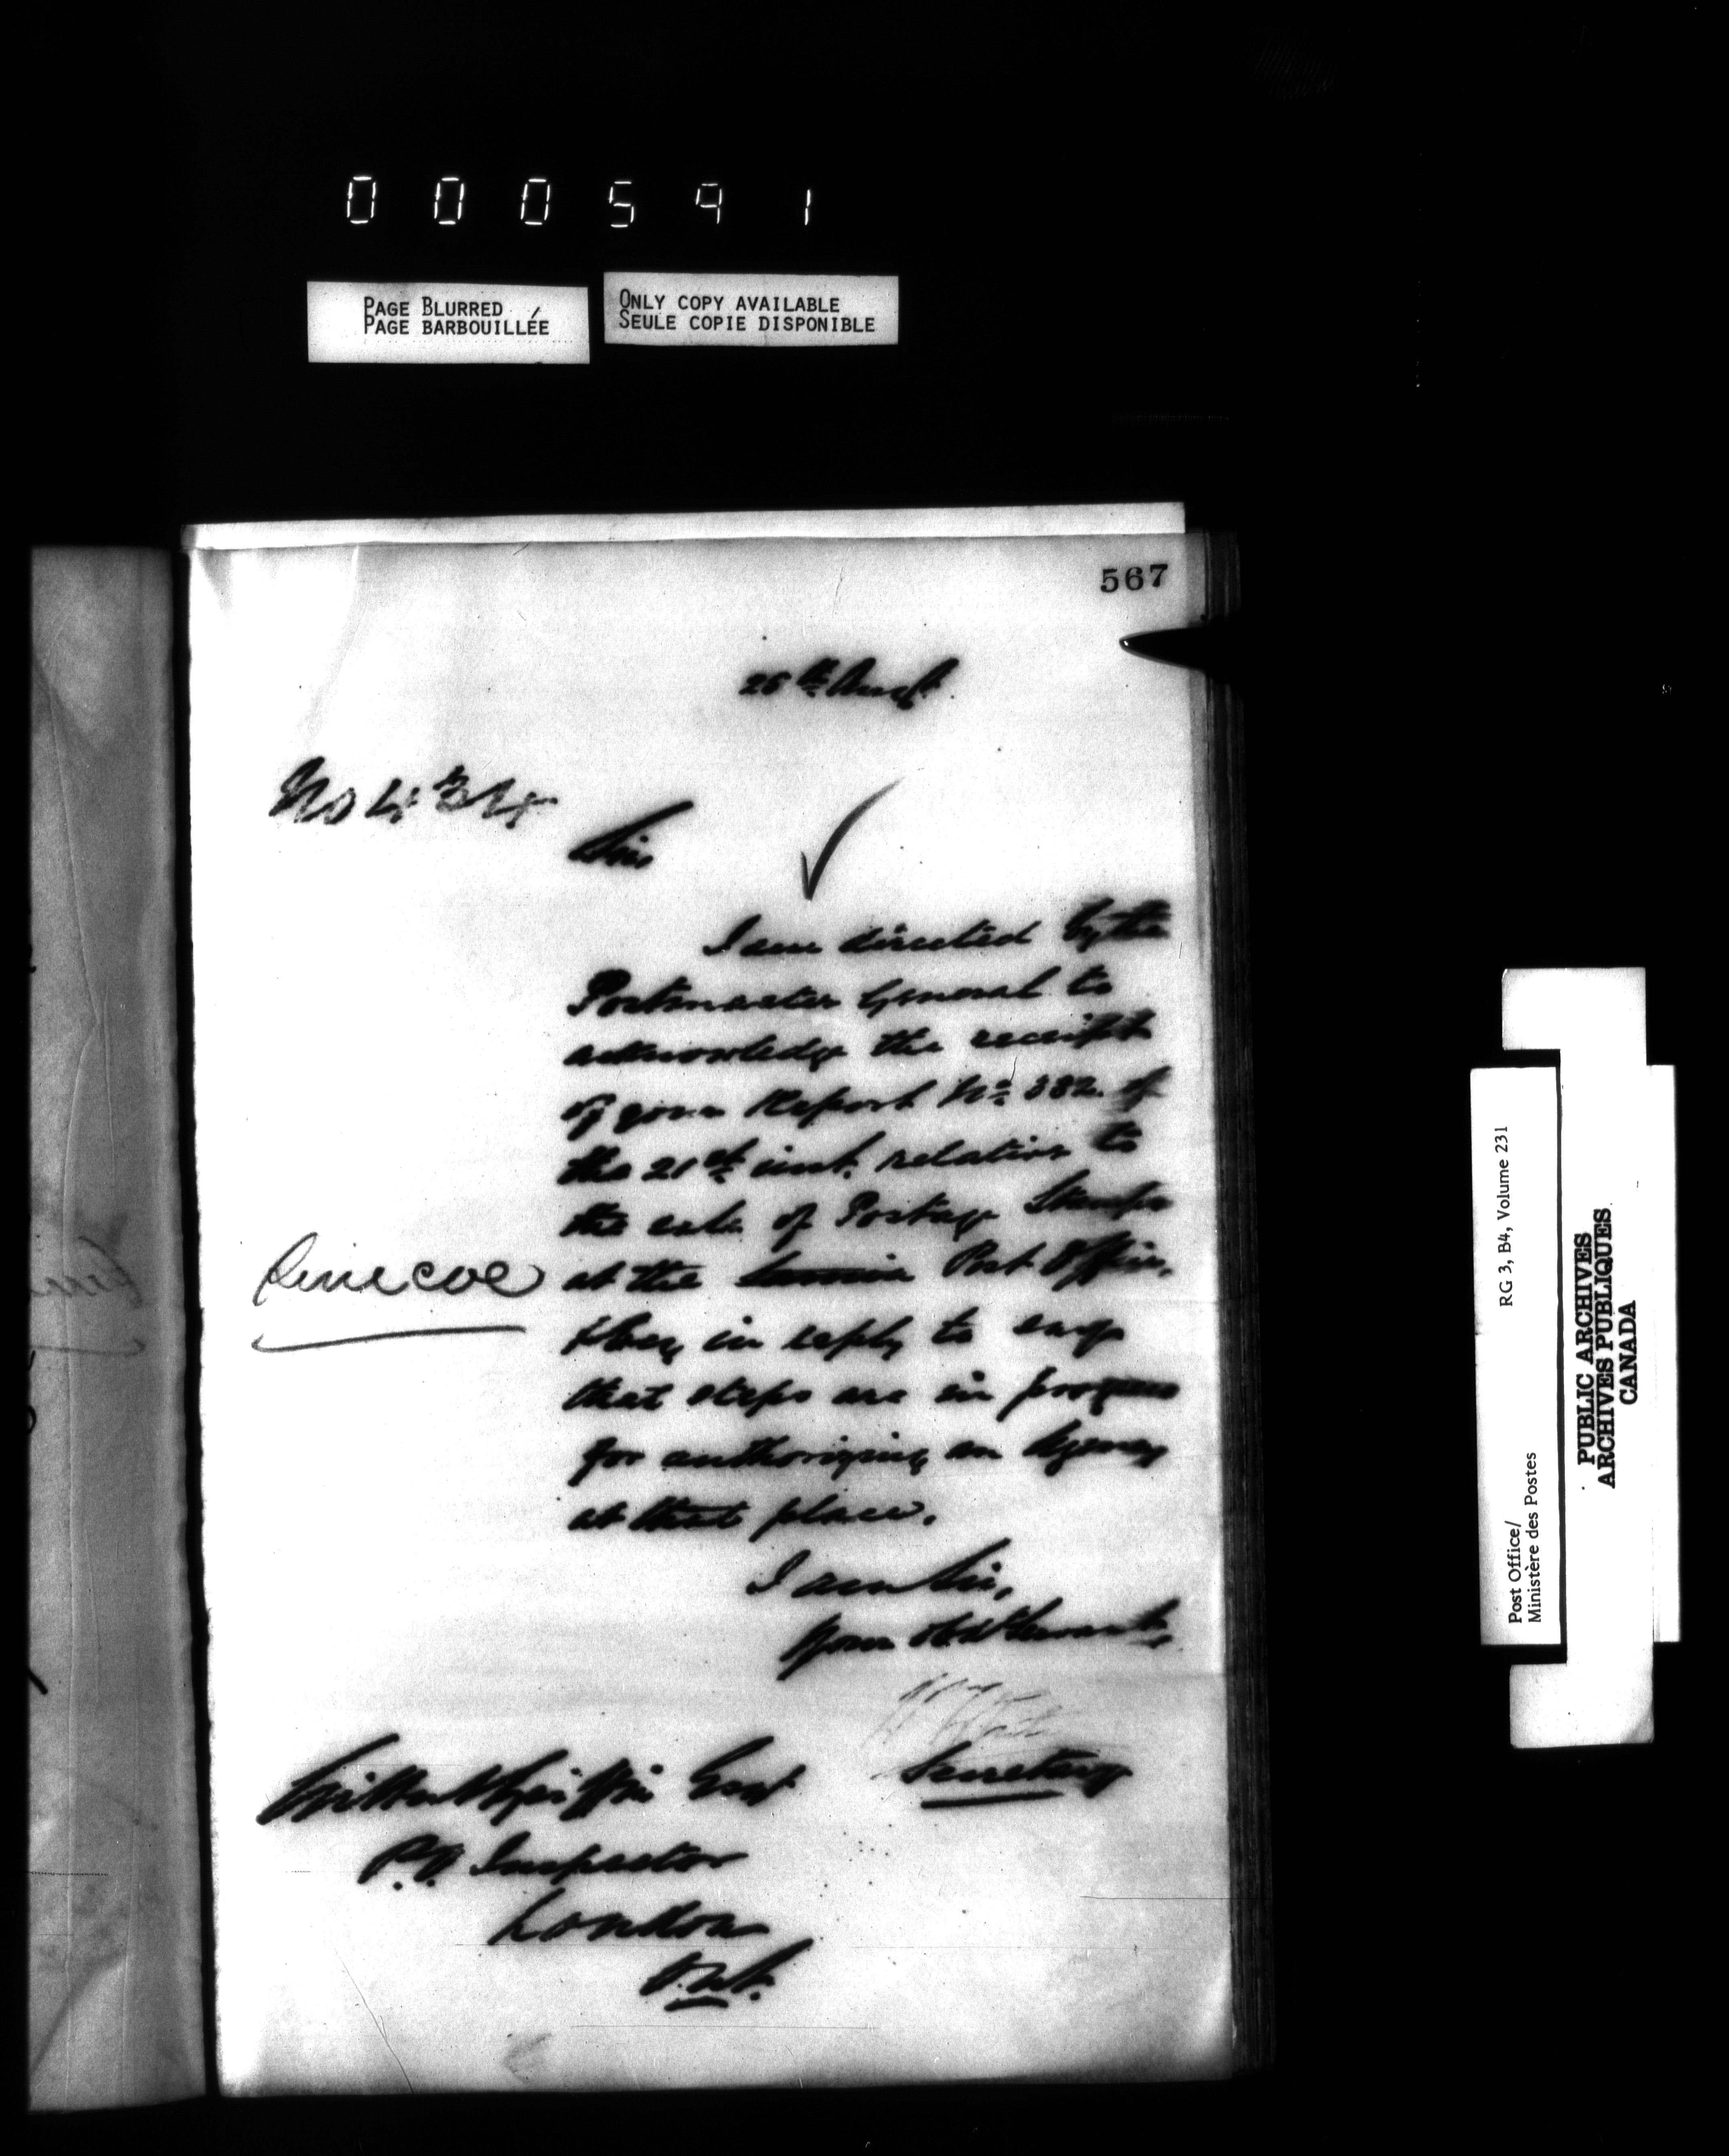 000591
PAGE BLURRED
PAGE BARBOUILLÉE
ONLY COPY AVAILABLE
SEULE COPIE DISPONIBLE
567
26th Augt.
No 434
Sir
I am directed by the
Postmaster General to
acknowledge the receipt
of your Report No. 382 of
the 21st inst. relative to
the sale of Postage Stamps
Simcoe
at the Post Office,
I beg in reply to say
that steps are in progress
for authorizing an Agency
at that place.
I am Sir,
Your Obdt Servant,
Secretary
Gilbert Griffin Esqr
P.O. Inspector
London
Ont.
RG 3, B4, Volume 231
Post Office/
Ministère des Postes
PUBLIC ARCHIVES
ARCHIVES PUBLIQUES
CANADA